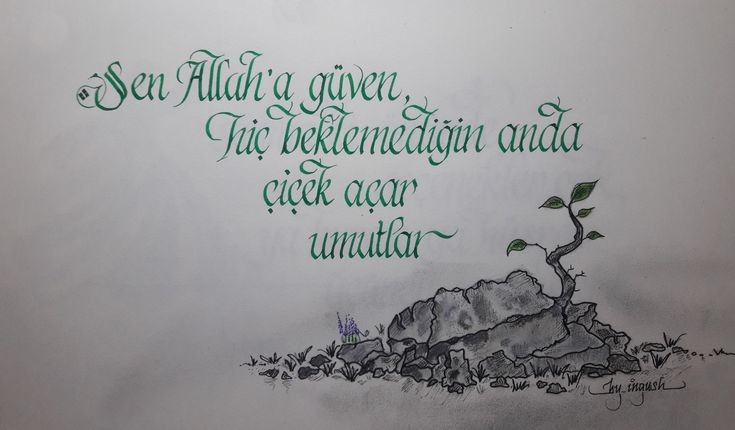 Sen Allah'a güven,
hiç beklemediğin anda
çiçek açar
umutlar
by ingush